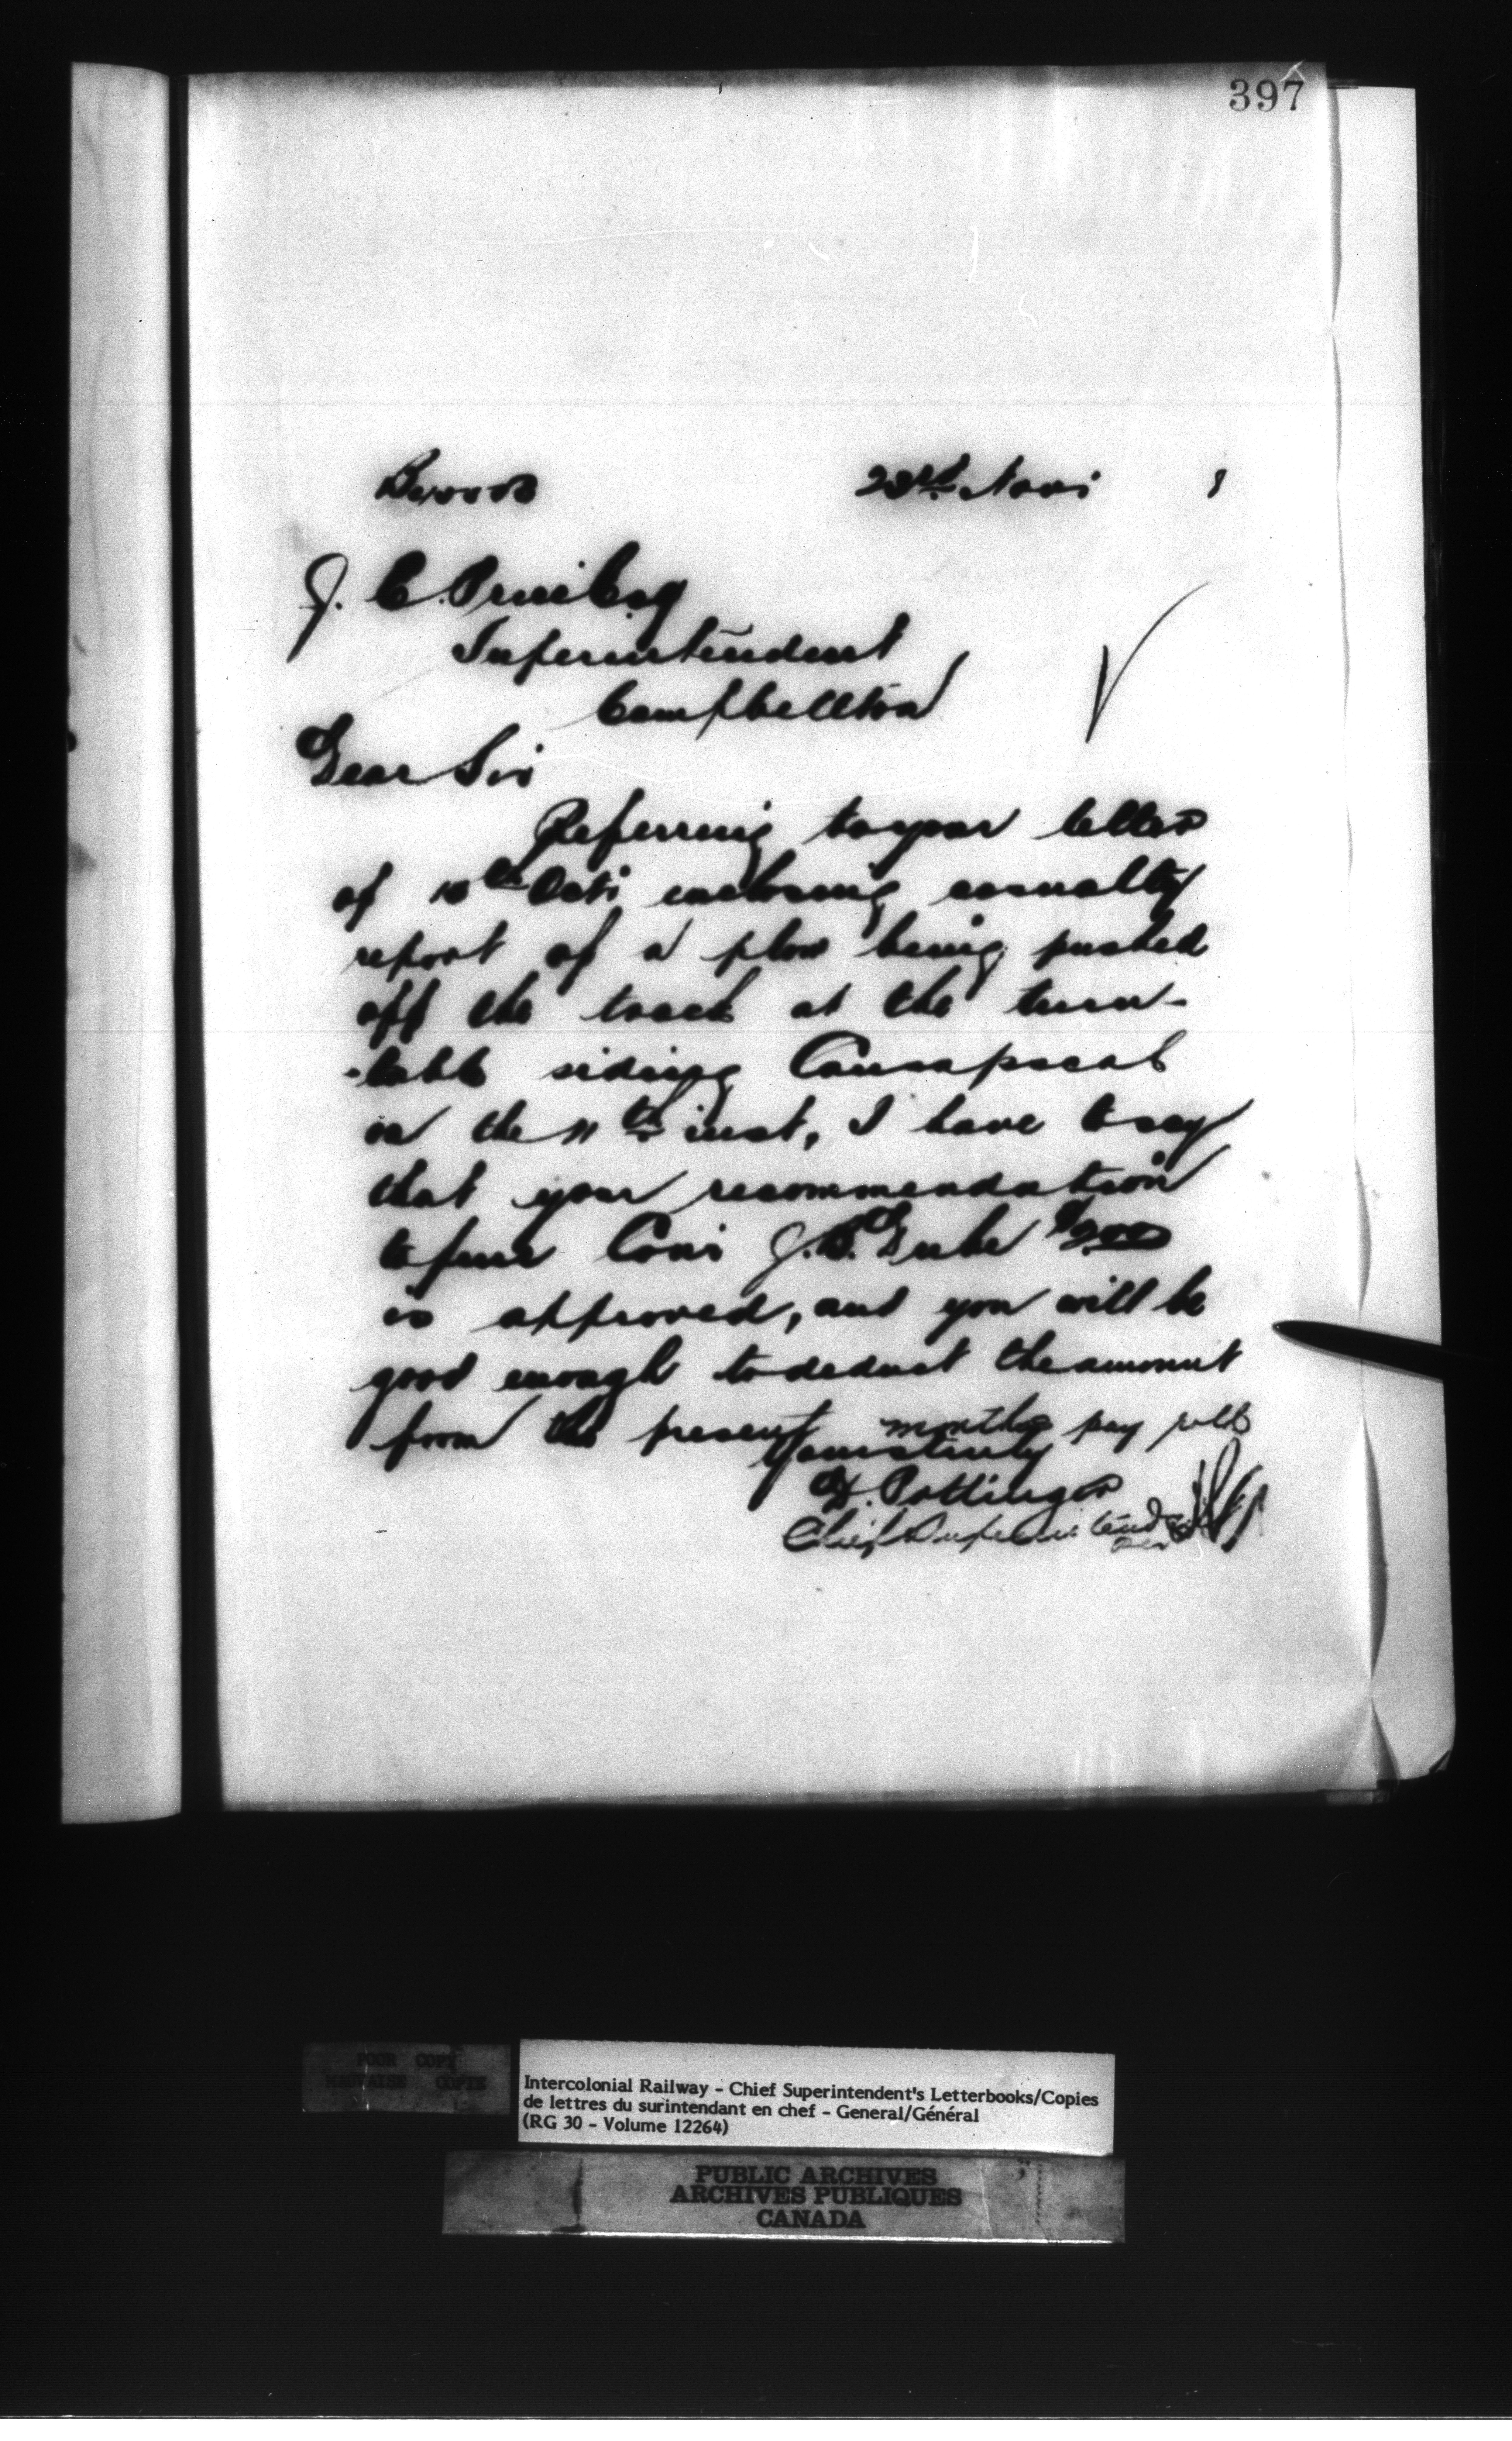 397
23rd Nov: 8
J. C. Price Esq
Superintendent
Campbellton
Dear Sir
Referring to your letter
of 10th Oct: enclosing casualty
report of a plow being pushed
off the track at the turn-
-table siding Causapscal
on the 11th inst, I have to say
that your recommendation
to fine Con: J. B. Dube $2.00
is approved, and you will be
good enough to deduct the amount
from the present months pay rolls
Yours truly
D. Pottinger
Chief Superintendent
Per
POOR COPY
MAUVAISE COPIE
Intercolonial Railway - Chief Superintendent's Letterbooks/Copies
de lettres du surintendant en chef - General/Général
(RG 30 - Volume 12264)
PUBLIC ARCHIVES
ARCHIVES PUBLIQUES
CANADA